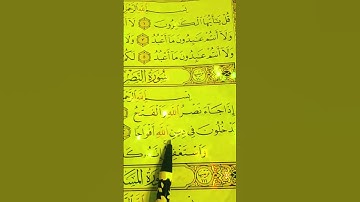 بِسْمِ ٱللَّهِ ٱلرَّحْمَ
قُلْ يَٰٓأَيُّهَا ٱلْكَٰفِرُونَ ١ لَآ أَ
وَلَآ أَنتُمْ عَٰبِدُونَ مَآ أَعْبُدُ
وَلَآ أَنتُمْ عَٰبِدُونَ مَآ أَعْبُدُ ٥ لَكُ
سُورَةُ النَّصْرِ
بِسْمِ ٱللَّهِ ٱلرَّحْ
إِذَا جَآءَ نَصْرُ ٱللَّهِ وَٱلْفَتْحُ ١
يَدْخُلُونَ فِى دِينِ ٱللَّهِ أَفْوَاجًا ٢
وَٱسْتَغْفِ
سُورَةُ المَسَ